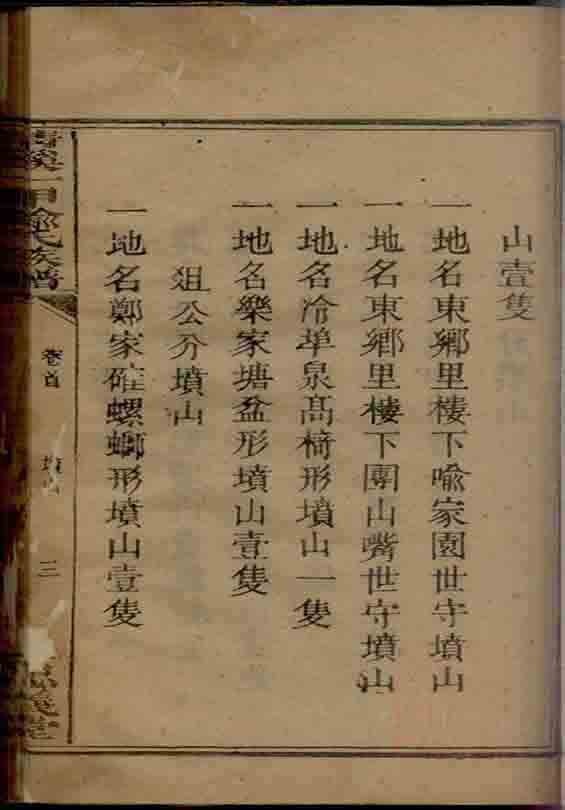 山壹隻
一地名東鄉里樓下喻家園世守墳山
一地名東鄉里樓下團山嘴世守墳山
一地名冷埠泉髙椅形墳山一隻
一地名樂家塘盆形墳山壹隻
俎公分墳山
一地名鄭家確螺螄形墳山壹隻
溪一甲喻氏族譜
卷首
墳山
三
堂